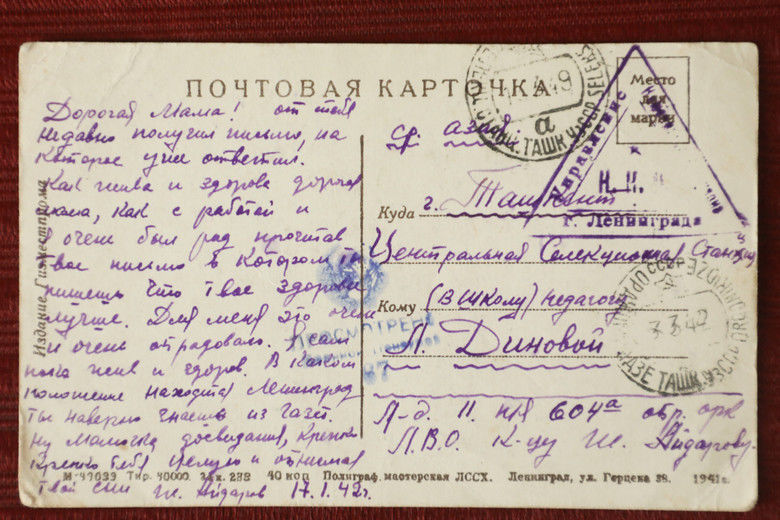 ПОЧТОВАЯ КАРТОЧКА
Дорогая Мама! от тебя
недавно получил письмо, на
которое уже ответил.
Как жива и здорова дорогая
мама, как с работой и
Я очень был рад прочитав
твое письмо в котором ты
пишешь что твое здоровье
лучше. Для меня это очень
и очень отрадовало. Я сам
пока жив и здоров. В каком
положение находится Ленинград
ты наверно знаешь из газет.
Ну мамочка досвидания, крепко
крепко тебя целую и обнимаю
твой сын Айдаров 17.1.42г.
Издание Гизместпрома
Место
для
марки
ср. азия.
Куда
г. Ташкент
Центральная Селекционная Станция
Кому
(В школу) педагогу
Л. Диновой
Л-д. 11. п/я 604а
Л.В.О. К-цу Айдарову.
Управление
Н.П.
г. Ленинграда
а
ТАШК УЗССР
ПРОСМОТРЕНО
87
3 42
ТАШК УЗССР
Тир. 40000. Зак. 232 40 коп Полиграф. мастерская ЛССХ. Ленинград, ул. Герцена 38. 1941г.